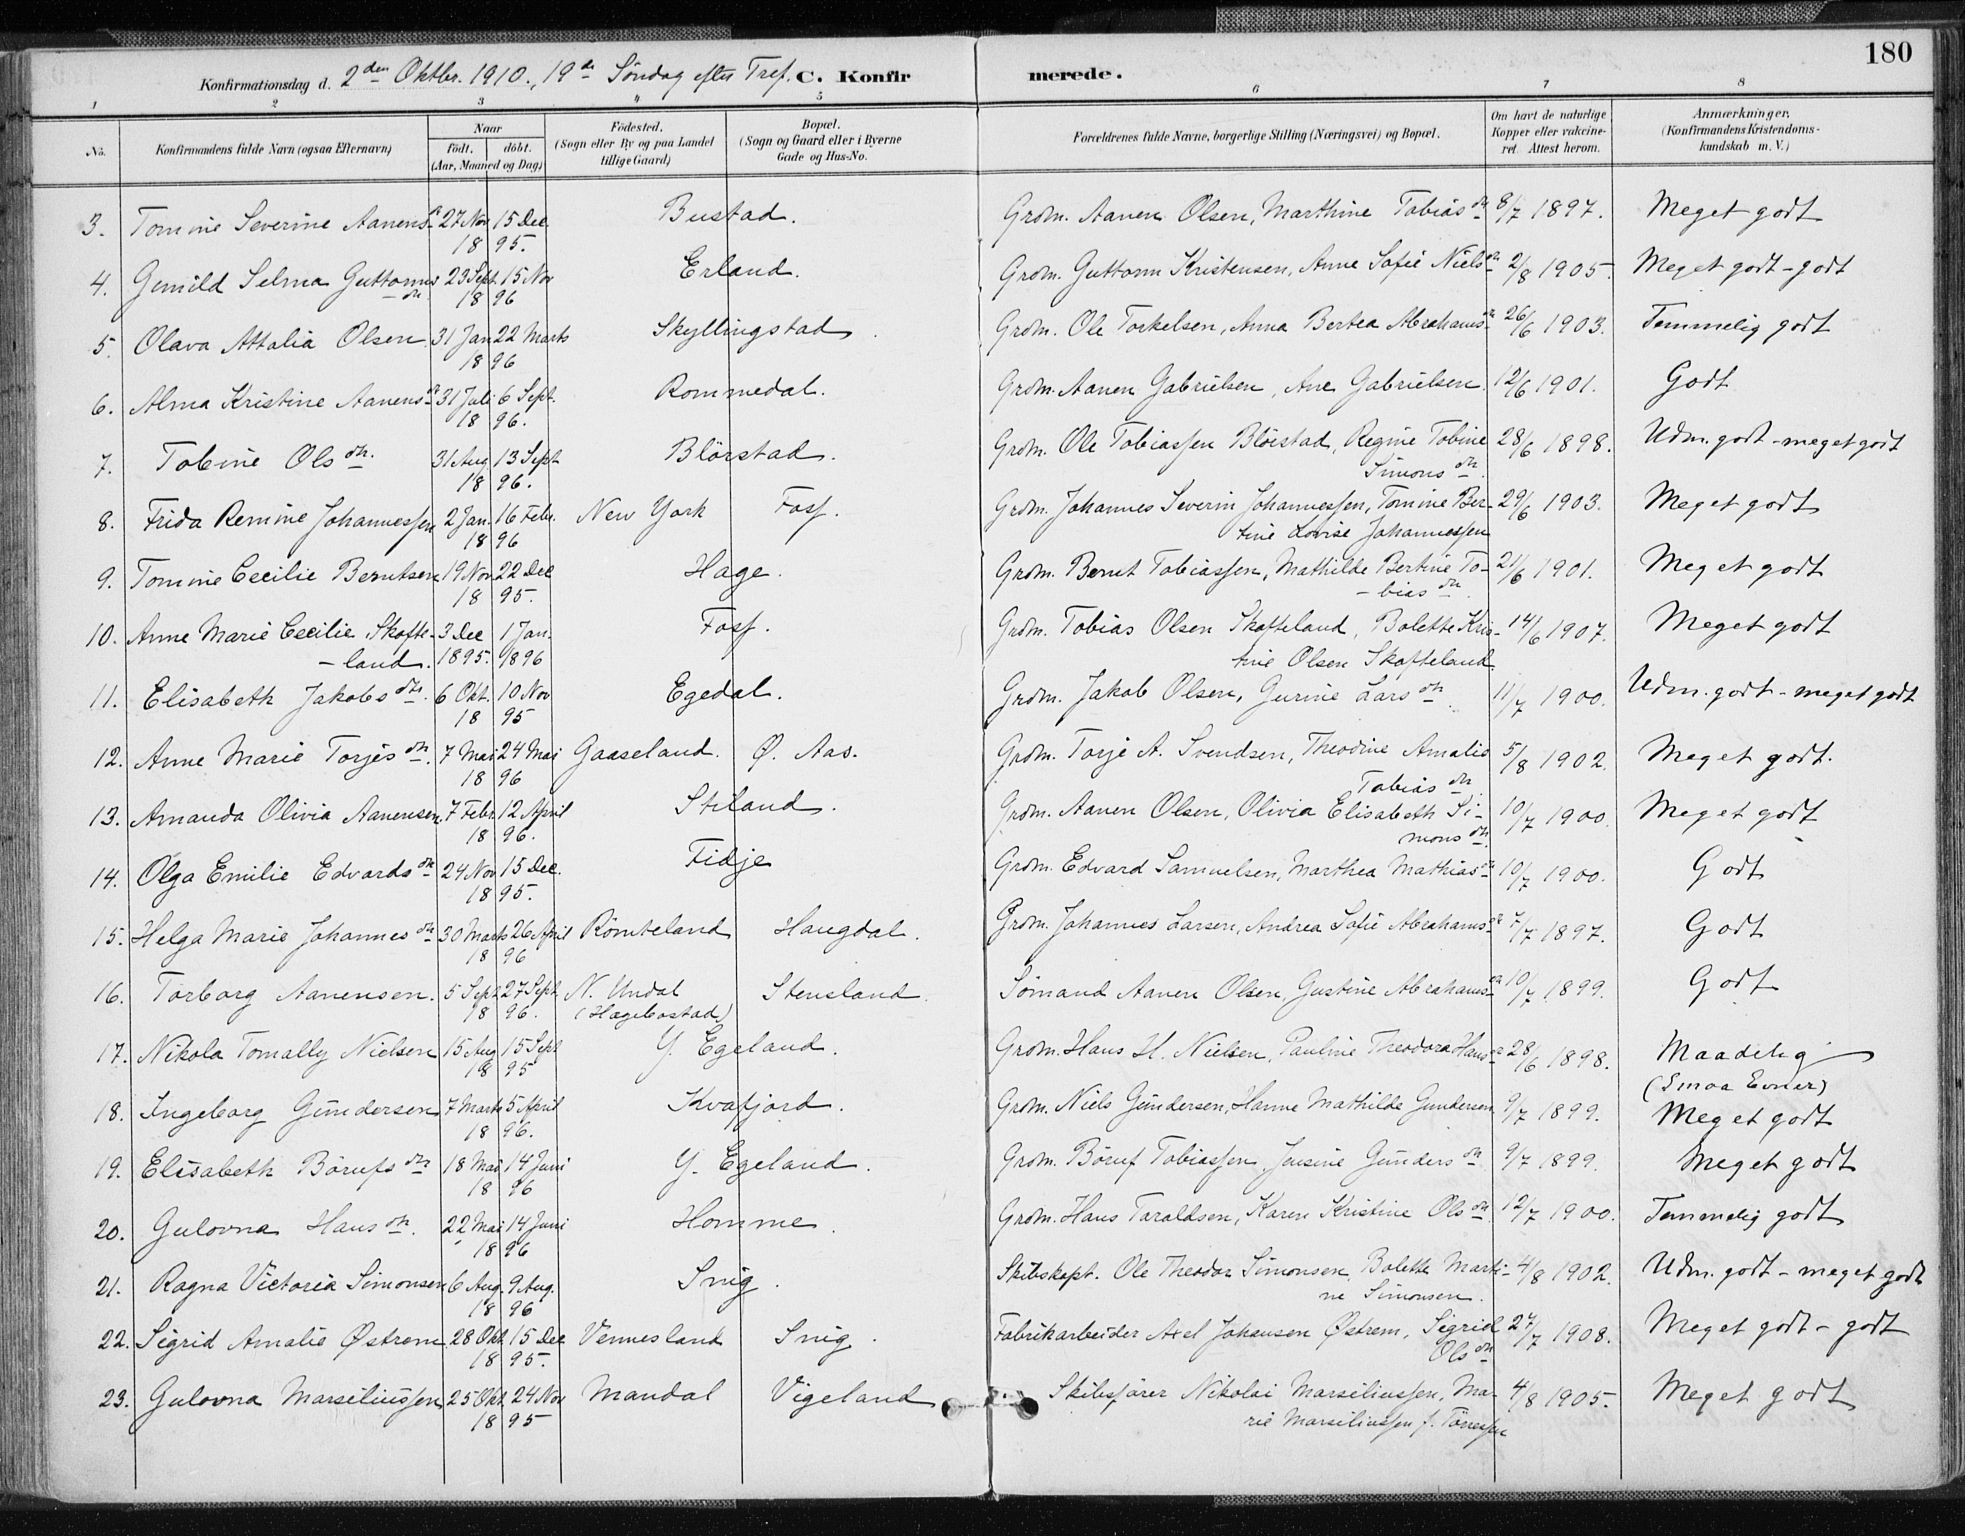 180
Konfirmationsdag d. 2den Oktbr. 1910., 19de Söndag efter Tref. C. Konfirmerede.
1 2 3 4 5 6 7 8
No. Konfirmandens fulde Navn (ogsaa Efternavn) Naar født. døbt. (Aar, Maaned og Dag) Fødested. (Sogn eller By og paa Landet tillige Gaard) Bopæl. (Sogn og Gaard eller i Byerne Gade og Hus-No. Forældrenes fulde Navne, borgerlige Stilling (Næringsvei) og Bopæl. Om havt de naturlige Kopper eller vakcineret. Attest herom. Anmærkninger. (Konfirmandens Kristendomskundskab m. V.)
3. Tomine Severine Aanensd. 27 Nov 15 Dec. Bustad. Grdm. Aanen Olsen, Marthine Tobiasdtr 8/7 1897. Meget godt
18 95.
4. Gunild Selma Guttorms 23 Sept. 15 Nov Erland. Grdm. Guttorm Kristensen, Anne Sofie Nielsdtr 2/8 1905. Meget godt - godt
- dtr. 18 96
5. Olava Attalia Olsen 31 Jan 22 Marts Skyllingstad. Grdm. Ole Torkelsen, Anna Bertea Abrahamsdtr 26/6 1903. Temmelig godt
18 96
6. Alma Kristine Aanensdtr 31 Juli 6 Sept. Rommedal. Grdm. Aanen Gabrielsen, Ane Gabrielsen 12/6 1901. Godt
18 96.
7. Tobine Olsdtr. 31 Aug 13 Sept Blörstad. Grdm. Ole Tobiassen Blörstad, Regine Tobine 28/6 1898. Udm. godt - meget godt
18 96. Simonsdtr.
8. Frida Remine Johannessen 2 Jan. 16 Febr. New York Foss. Grdm. Johannes Severin Johannessen, Tomine Ber- 29/6 1903. Meget godt
18 96 tine Lovise Johannessen
9. Tomine Cecilie Berntsen 19 Nov 22 Dec Hage. Grdm. Bernt Tobiassen, Mathilde Bertine To- 21/6 1901. Meget godt
18 95. - biasdtr.
10. Anne Marie Cecilie Skofte- 3 Dec 1 Jan. Foss. Grdm. Tobias Olsen Skofteland, Bolette Kris- 14/6 1907. Meget godt
- land. 1895. 1896 tine Olsen Skofteland.
11. Elisabeth Jakobsdtr. 6 Okt. 10 Nov Egedal. Grdm. Jakob Olsen, Gurine Larsdtr. 11/7 1900. Udm. godt - meget godt
18 95
12. Anne Marie Torjesdtr. 7 Mai 24 Mai Gaaseland. Ø. Aas. Grdm. Torje A. Svendsen, Theodine Amalie 5/8 1902. Meget godt.
18 96 Tobiasdtr.
13. Amanda Olivia Aanensen 7 Febr 12 April Stiland. Grdm. Aanen Olsen, Olivia Elisabeth Si- 10/7 1900. Meget godt
18 96. monsdtr.
14. Olga Emilie Edvardsdtr 24 Nov 15 Dec. Fidje Grdm. Edvard Samuelsen, Marthea Mathiasdtr 10/7 1900. Godt
18 95.
15. Helga Marie Johannesdtr 30 Marts 26 April Römteland Haugdal. Grdm. Johannes Larsen, Andrea Sofie Abrahamsdtr 7/7 1897. Godt
18 96
16. Torborg Aanensen. 5 Sept 27 Sept. N. Undal Stensland. Sömand Aanen Olsen, Gustine Abrahamsdtr 10/7 1899. Godt
18 96. (Hægebostad)
17. Nikola Tomally Nielsen 15 Aug 15 Sept Y. Egeland. Grdm. Hans H. Nielsen, Pauline Theodora Hansdtr 28/6 1898. Maadelig
18 95 (Smaa Evner)
18. Ingeborg Gundersen 7 Marts 5 April Kvafjord. Grdm. Niels Gundersen, Hanne Mathilde Gundersen 9/7 1899. Meget godt
18 96.
19. Elisabeth Börufsdtr 18 Mai 14 Juni Y. Egeland. Grdm. Böruf Tobiassen, Jensine Gundersdtr 9/7 1899. Meget godt
18 96
20. Gulovna Hansdtr. 22 Mai 14 Juni Homme. Grdm. Hans Taraldsen, Karen Kristine Olsdtr. 12/7 1900. Temmelig godt
18 96
21. Ragna Victoria Simonsen 6 Aug. 9 Aug. Snig. Skibskapt. Ole Theodor Simonsen, Bolette Marti- 4/8 1902. Udm. godt - meget godt
18 96 ne Simonsen.
22. Sigrid Amalie Østrem 28 Okt. 15 Dec Vennesland Snig. Fabrikarbeider Axel Johansen Østrem, Sigrid 27/7 1908. Meget godt - godt
18 95. Olsdtr
23. Gulovna Marseliussen 25 Okt. 24 Nov Mandal Vigeland Skibsfører Nikolai Marseliussen, Ma- 4/8 1905. Meget godt
18 95 rie Marseliussen f. Tönnessen